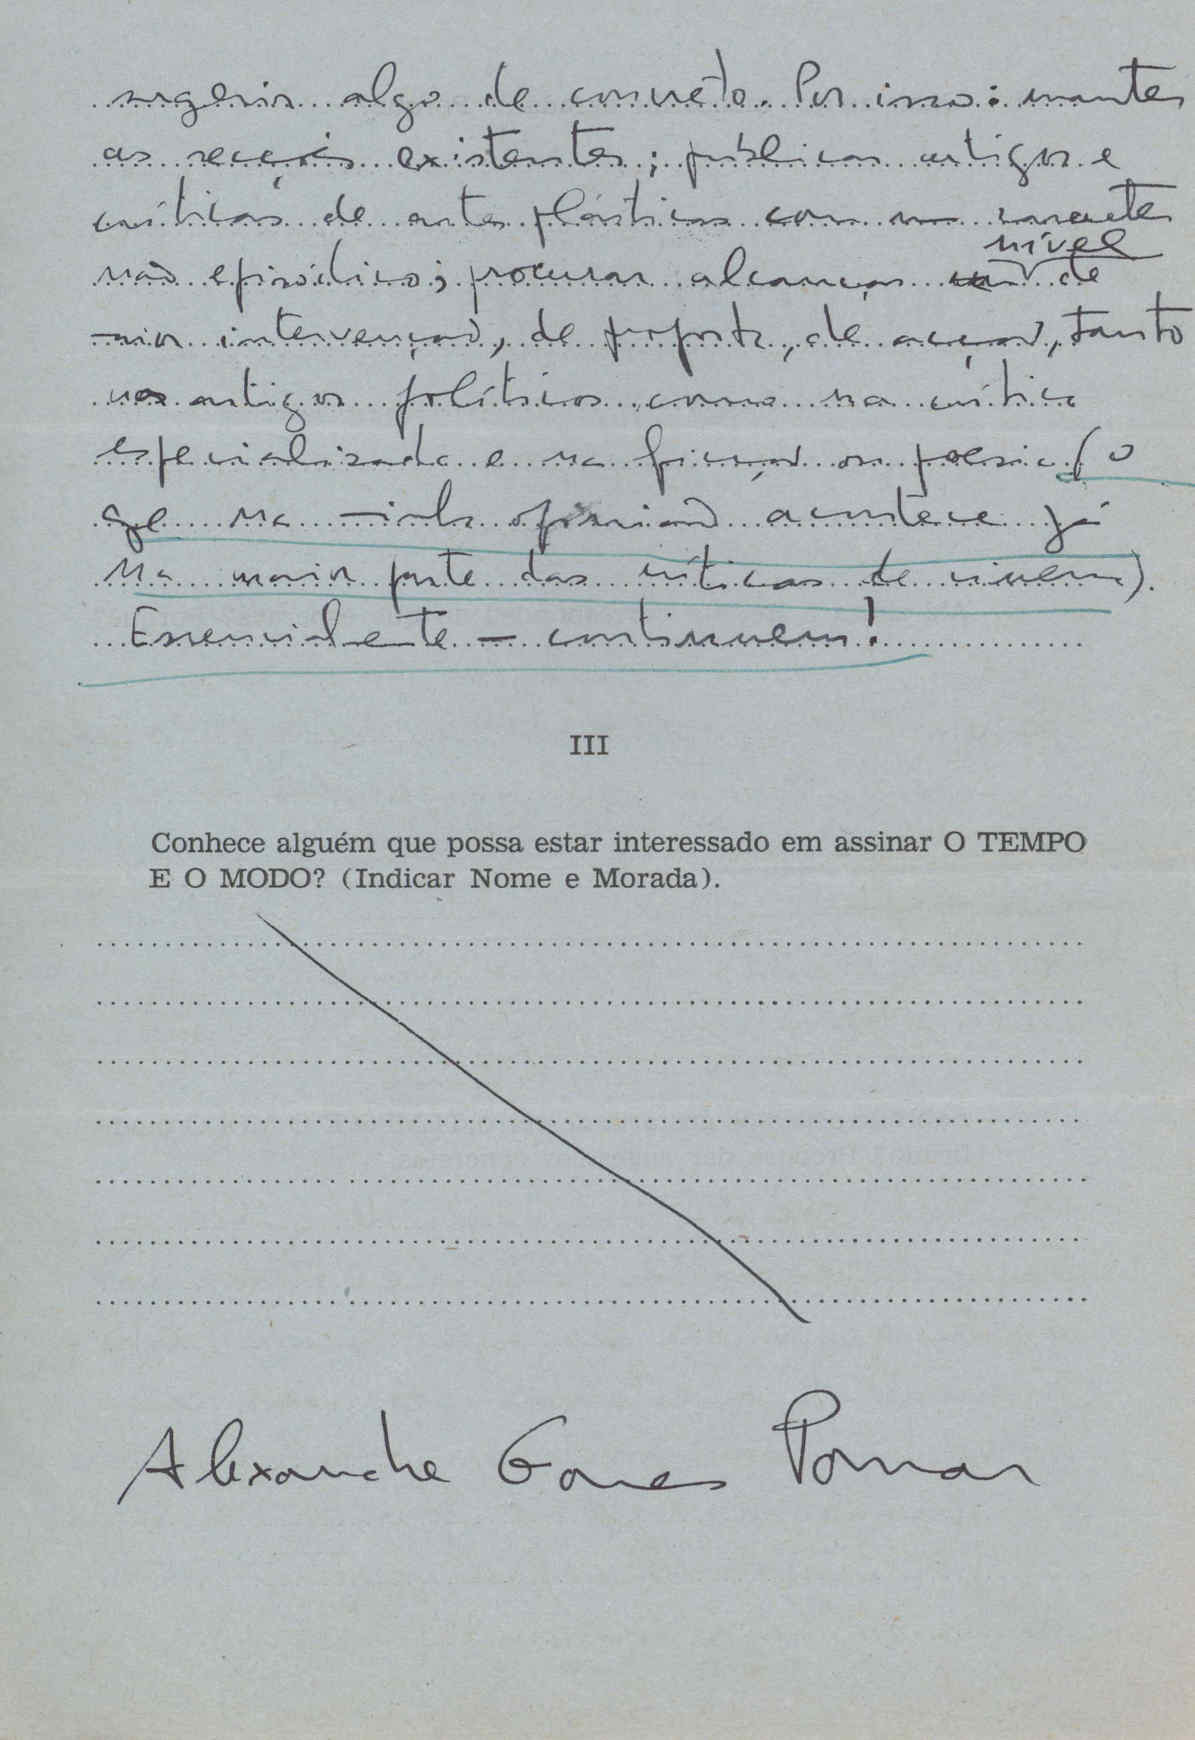 sugerir algo de concreto. Por isso: manter
as secções existentes; publicar artigos e
críticas de artes plásticas com um caracter
não episódico; procurar alcançar um nível de
maior intervenção, de proposta, de acção, tanto
nos artigos políticos como na crítica
especializada e na ficção ou poesia (o
que na minha opinião acontece já
na maior parte das críticas de cinema).
Essencialmente — continuem!
III
Conhece alguém que possa estar interessado em assinar O TEMPO
E O MODO? (Indicar Nome e Morada).
Alexandre Gomes Pomar